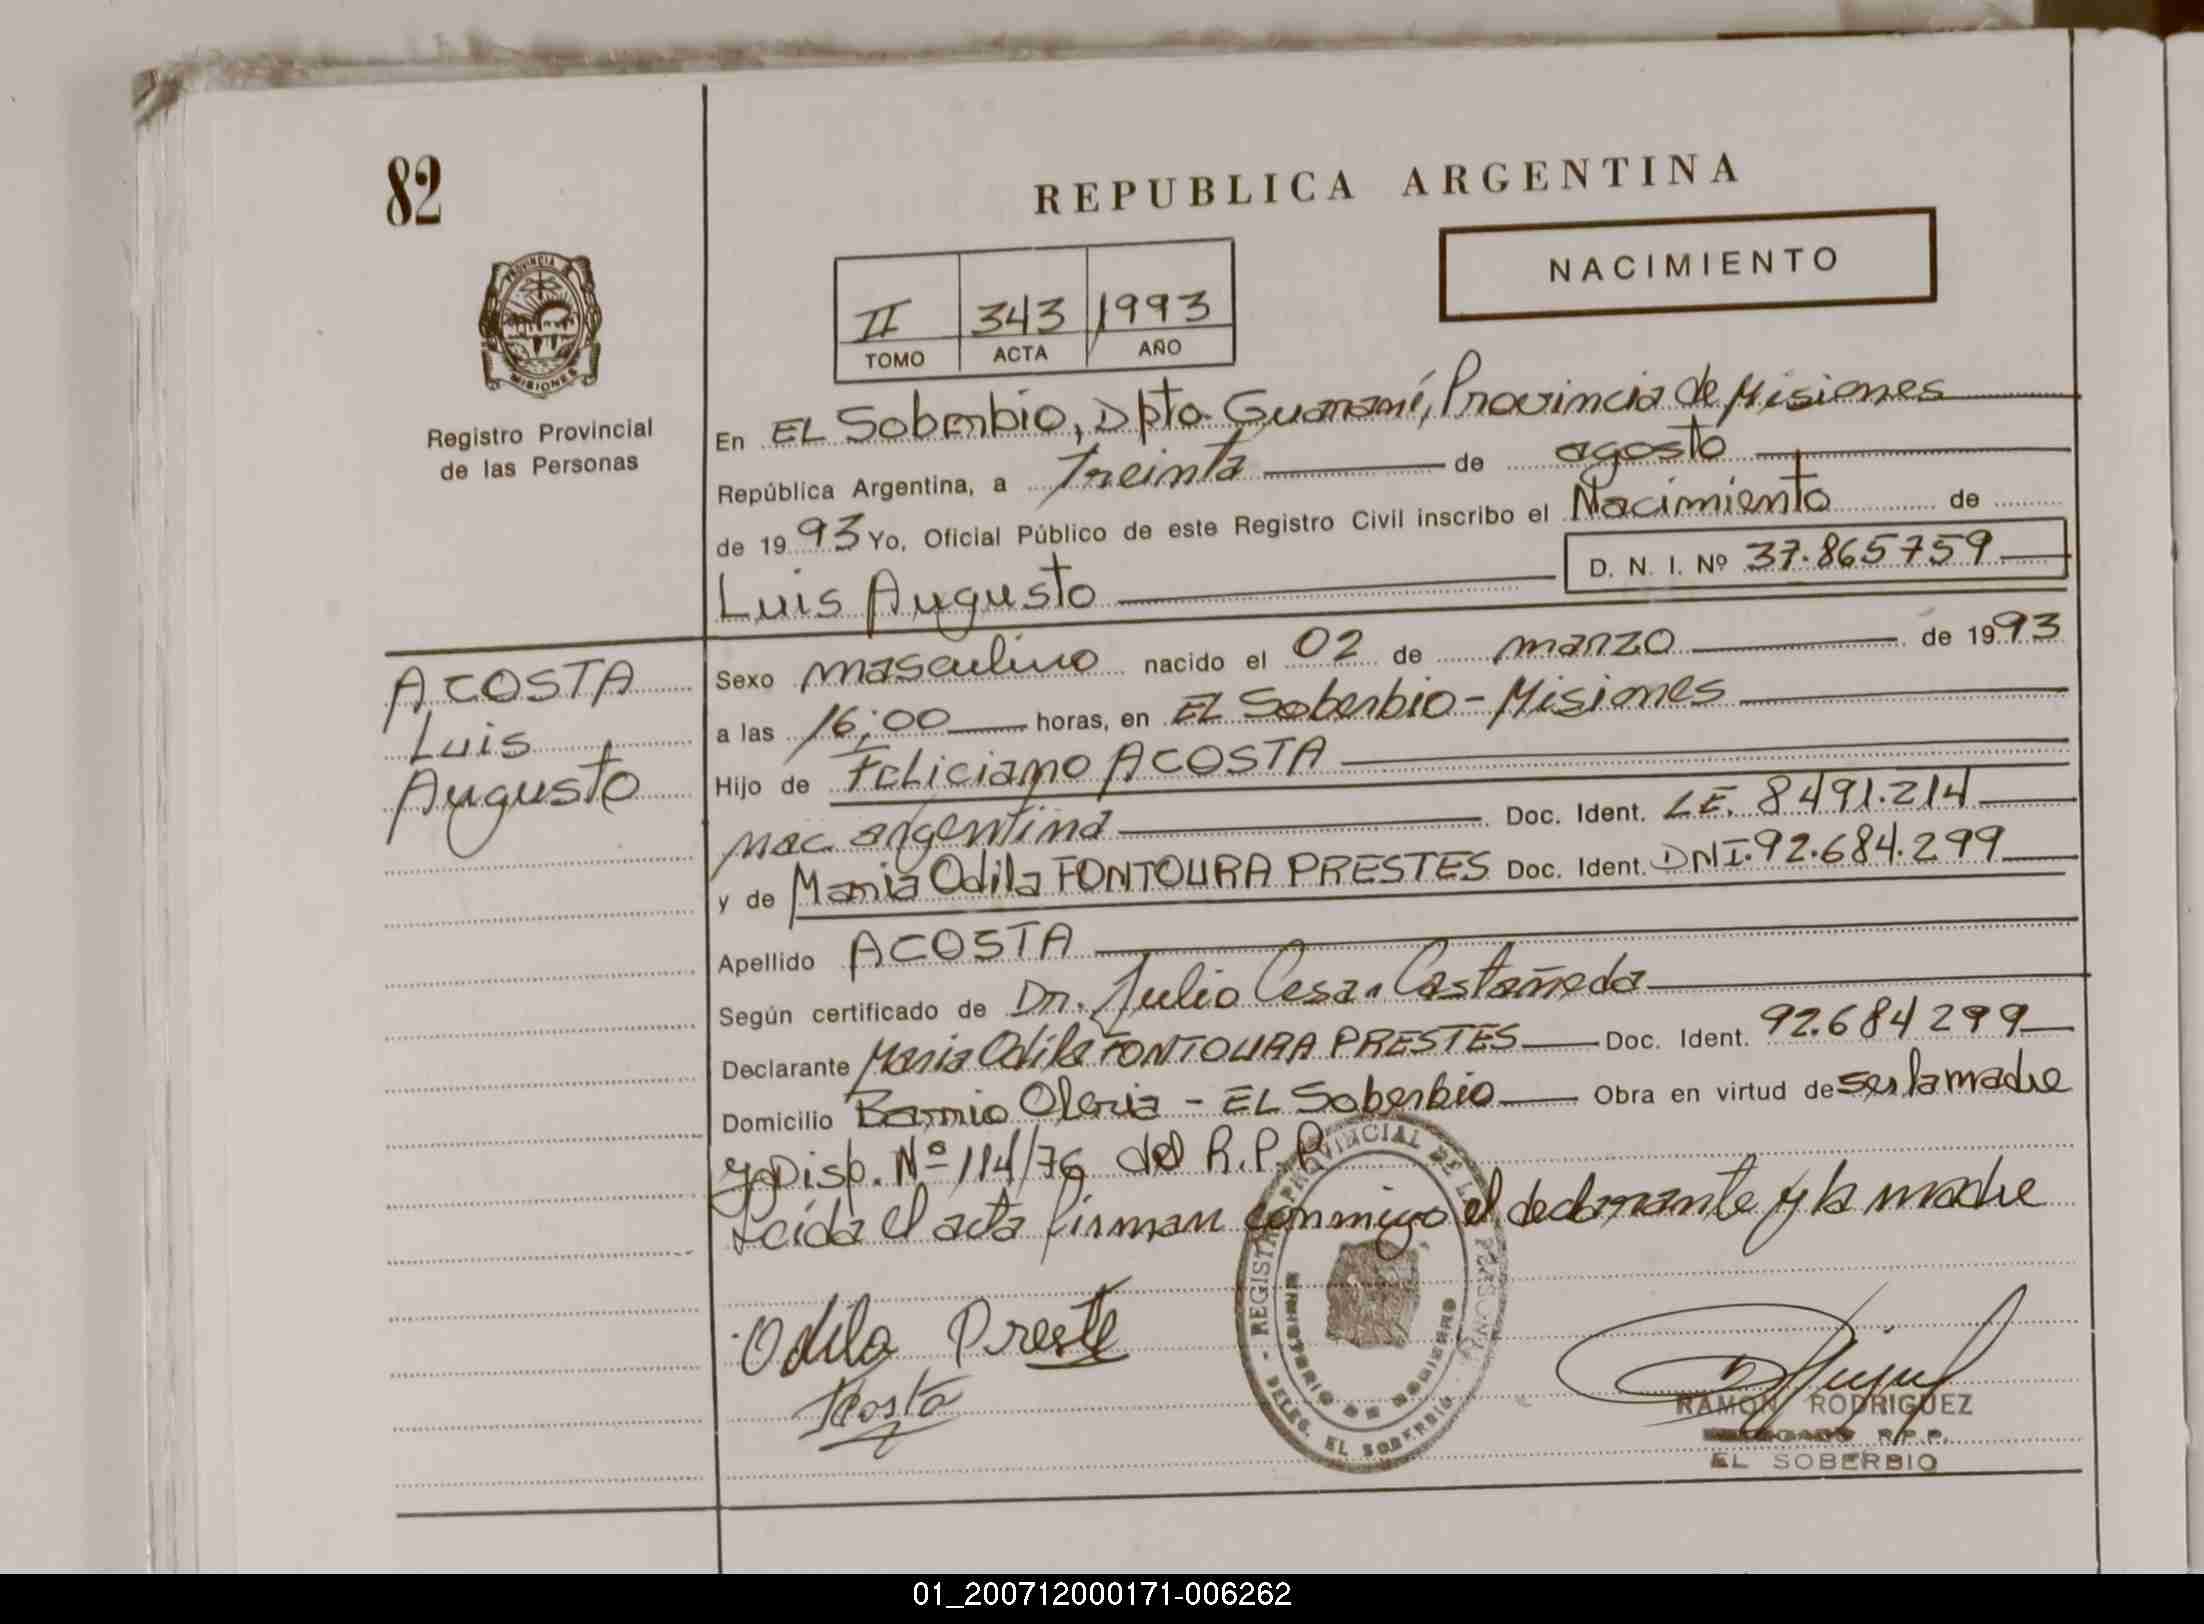 82
REPUBLICA ARGENTINA
NACIMIENTO
II 343 1993
TOMO ACTA AÑO
PROVINCIA DE
MISIONES
Registro Provincial
de las Personas
En EL Soberbio, Dpto. Guaraní, Provincia de Misiones
República Argentina, a treinta de agosto
de 1993 Yo, Oficial Público de este Registro Civil inscribo el Nacimiento de
Luis Augusto D. N. I. Nº 37.865759
ACOSTA
Luis
Augusto
Sexo masculino nacido el 02 de marzo de 1993
a las 16;00 horas, en EL Soberbio - Misiones
Hijo de Feliciano ACOSTA
nac. argentina Doc. Ident. LE. 8491.214
y de Maria Odila FONTOURA PRESTES Doc. Ident. DNI. 92.684.299
Apellido ACOSTA
Según certificado de Dr. Julio Cesar Castañeda
Declarante Maria Odila FONTOURA PRESTES Doc. Ident. 92.684299
Domicilio Barrio Oleria - EL Soberbio Obra en virtud de ser la madre
y Disp. Nº 114/76 del R.P.P.
Leida el acta firman conmigo el declarante y la madre
Odila Preste
Acosta
REGISTRO PROVINCIAL DE LAS PERSONAS
MINISTERIO DE GOBIERNO
DELEG. EL SOBERBIO
RAMON RODRIGUEZ
R.P.P.
EL SOBERBIO
01_200712000171-006262